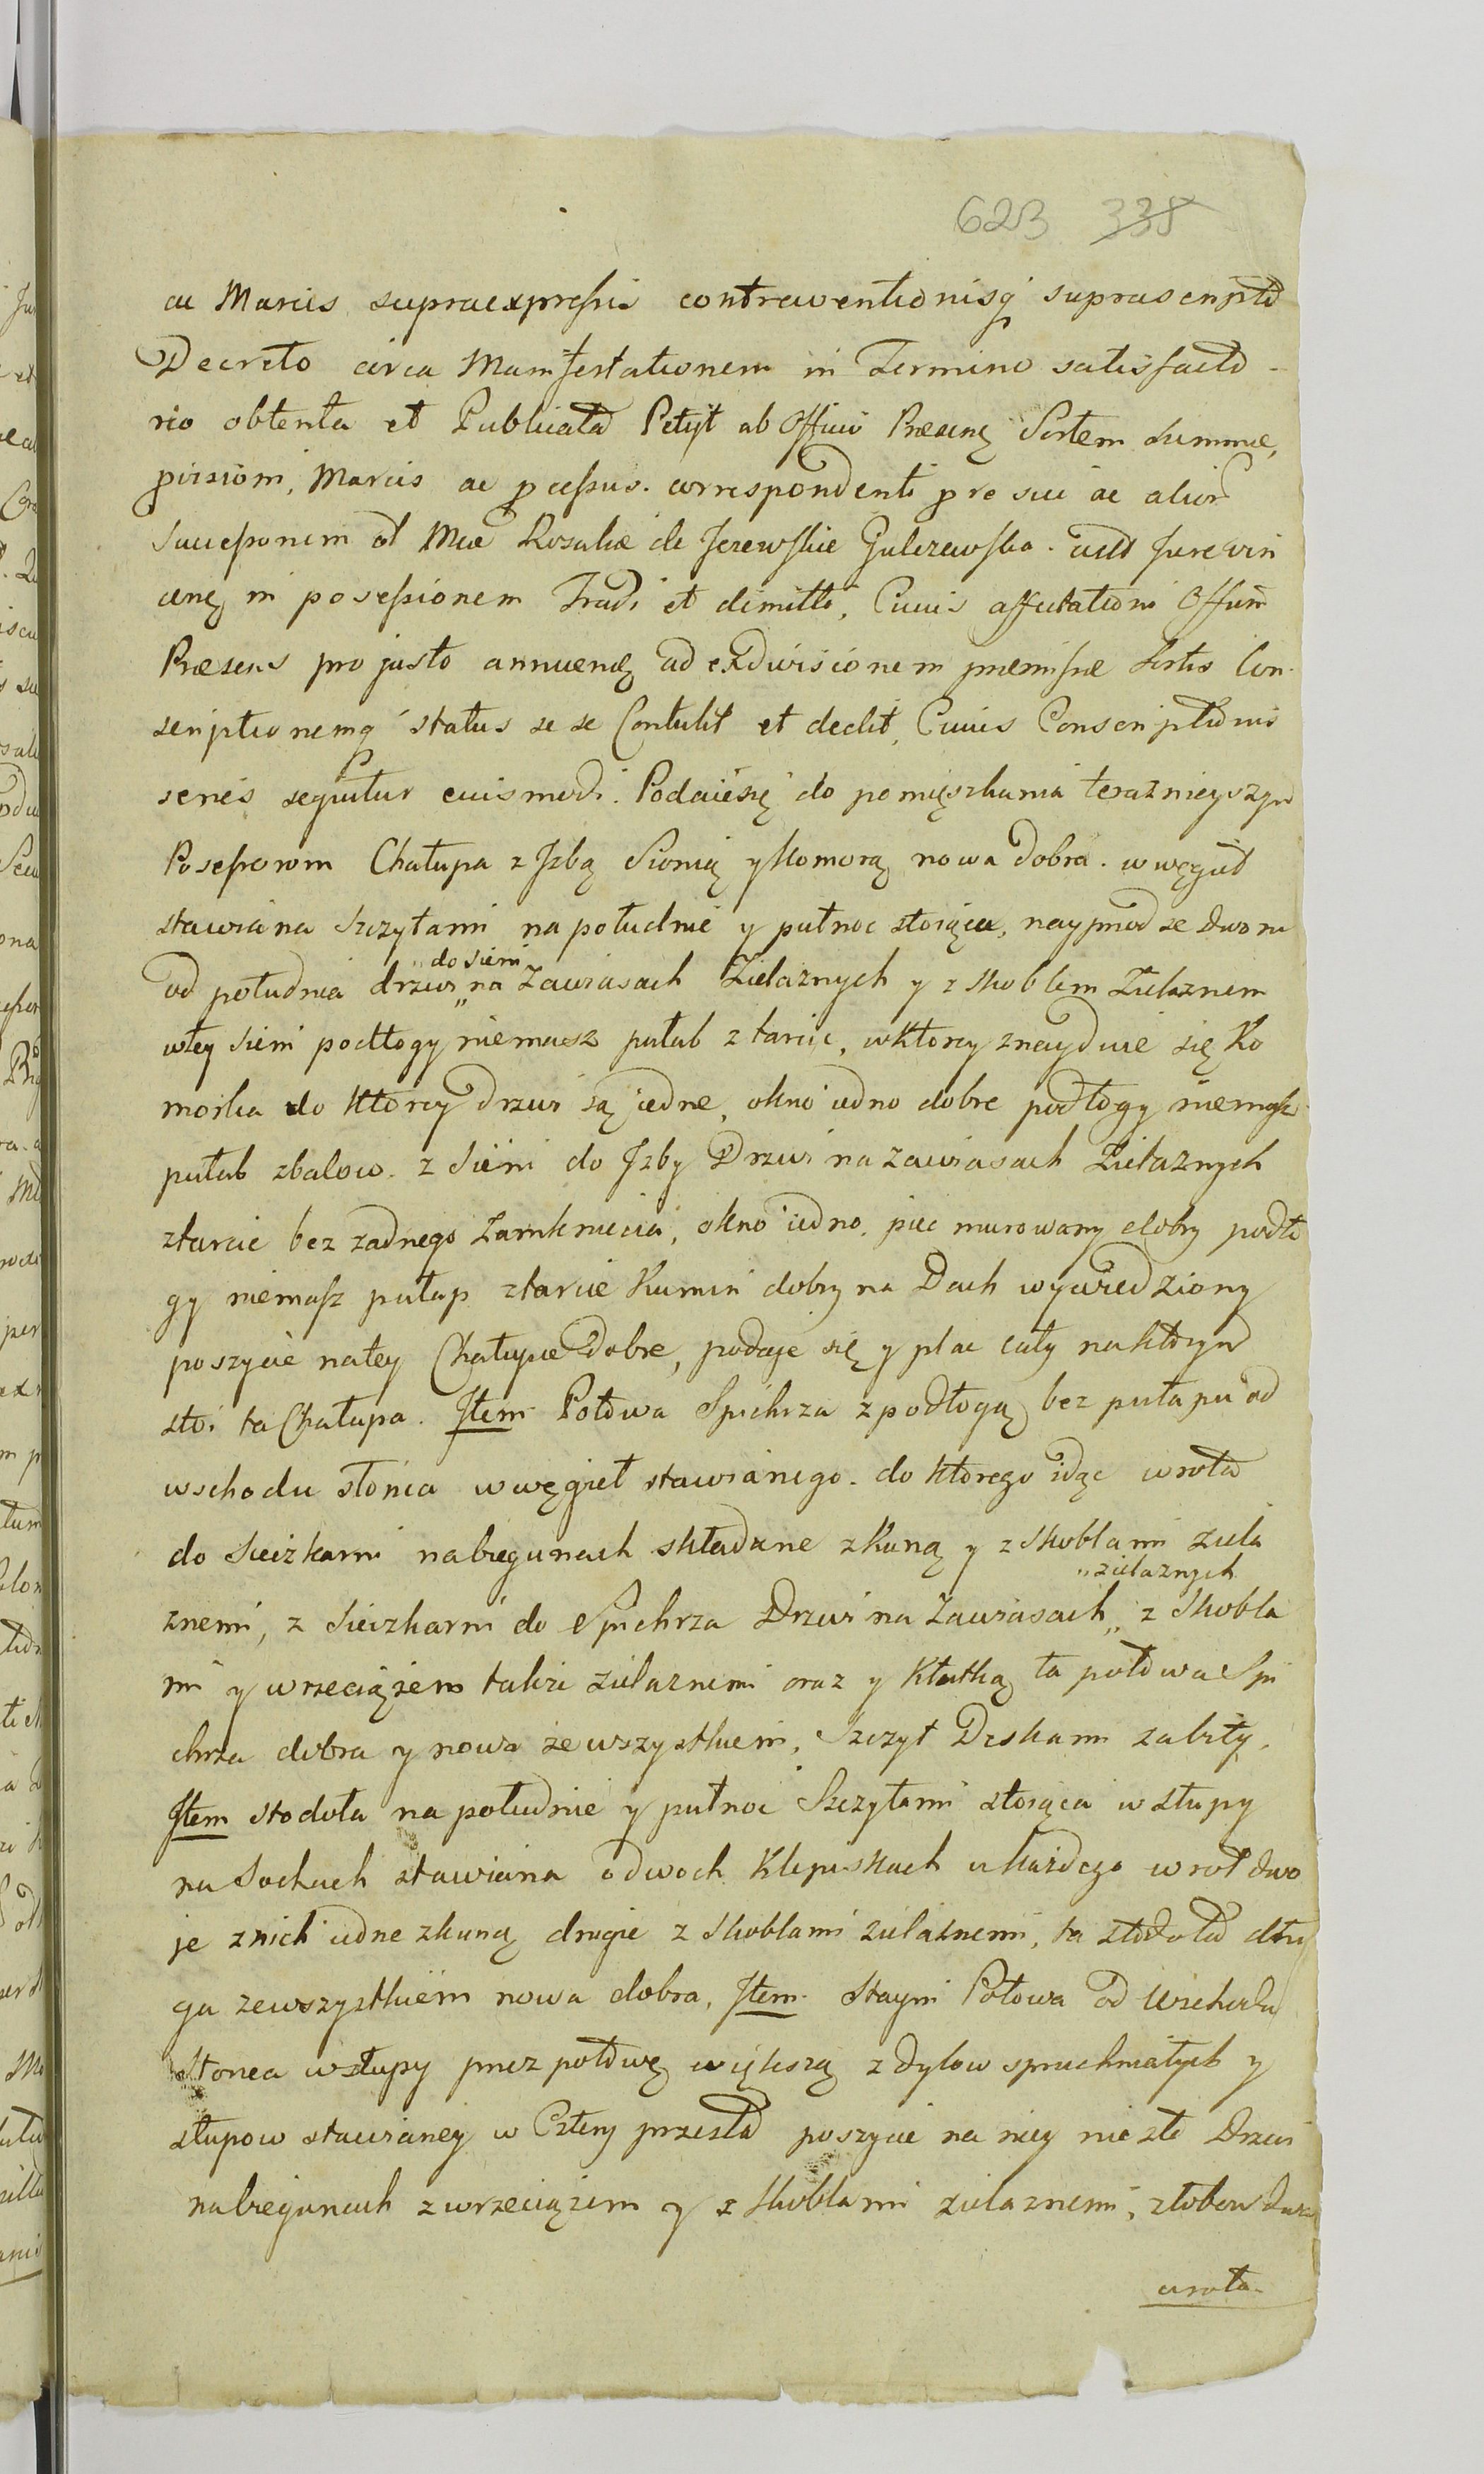 623 338
ac Marcis supraexpressis contraventionisq suprascripto
Decreto circa Manifestationem in Termino satisfacto-
rio obtenta et Publicata Petyt ab Officio Præsenq Sortem Summæ,
provisioni, Marcis ac pcessus. correspondenti pro sui ac alior
Successionem ad Mcæ Rosaliæ de Jezewskie Gulczewska. Jure vin
cenq in possessionem Tradi et dimitti, Cuius affectationi Offium
Præsens pro justo annuenq ad exdivisionem præmissæ Sortis Con-
scriptionemq status se se Contulit et dedit, Cuius Conscriptionis
series sequitur euismodi. Podaie się do pomięszkania teraznieyszym
Possessorom Chałupa z Jzbą Sionią y Komorą nowa dobra. w węgieł
stawiana Szczytami na południe y pułnoc stoiąca, nayprzod ze dworu
od południa drzwi „na Zawiasach Zielaznych y z Skoblem Zielaznem
„do sieni
wtey Sieni podłogy niemasz pułab z tarcic, wktorey znayduie się Ko
morka do ktorey drzwi są iedne, okno iedno dobre podłogy niemasz
pułab zbalow. z Sieni do Jzby Drzwi na zawiasach Zielaznych
ztarcic bez zadnego Zamkniecia, okno iedno. piec murowany dobry podło
gy niemasz pułap ztarcic Kumin dobry na Dach wywiedziony
poszycie natey Chałupie dobre, podaje się y plac cały naktorym
stoi ta Chałupa. Jtem Połowa Spichrza z podłogą bez pułapu od
wschodu słonca w węgieł stawianego. do ktorego idąc wrota
do Sieczkarni nabiegunach składane zkuną y z Skoblami ziela
znemi, z Sieczkarni do Spichrza Drzwi na Zawiasach „ z Skobla
„zielaznych
mi y wrzeciązem takze zielaznemi oraz y Kłutką ta połowa Spi
chrza dobra y nowa zewszystkiem, Szczyt Deskami zabity.
Jtem stodoła na południe y pułnoc Szczytami stoiąca w słupy
na Sochach stawiana o dwoch Klepiskach u każdego wrot dwo
je znich iedne zkuną drugie z Skoblami zielaznemi, ta stodoła dłu
ga zewszystkiem nowa dobra, Jtem Stayni Połowa od Wschodu
Słonca wsłupy przez połowę większą z dylow spruchniałych y
słupow stawianey w Cztery przesła poszycie na niey niezłe Drzwi
nabiegunach z wrzeciązem y z Skoblami zielaznemi, złobow dwa
wrota